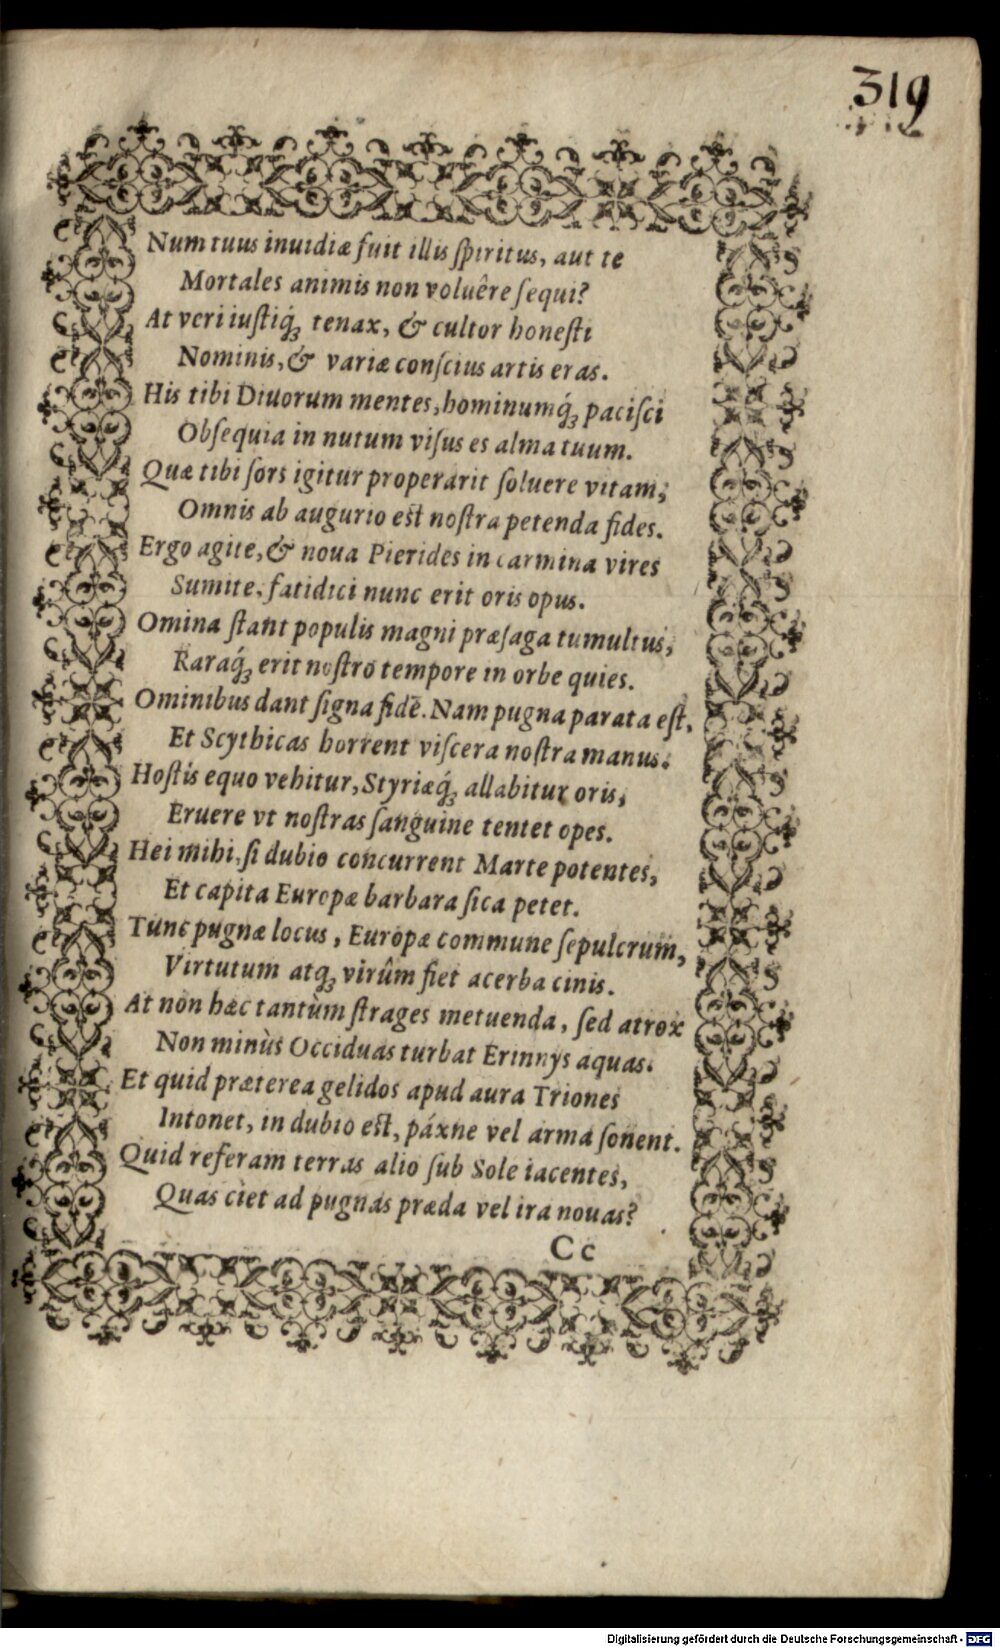 319
Num tuus inuidiæ fuit illis ſpiritus, aut te
Mortales animis non voluêre ſequi?
At veri iuſtiq́ꝫ tenax, & cultor honeſti
Nominis, & variæ conſcius artis eras.
His tibi Diuorum mentes, hominumq́ꝫ paciſci
Obſequia in nutum viſus es alma tuum.
Quæ tibi ſors igitur properarit ſoluere vitam,
Omnis ab augurio est noſtra petenda fides.
Ergo agite, & noua Pierides in carmina vires
Sumite, fatidici nunc erit oris opus.
Omina ſtant populis magni præſaga tumultus,
Raraq́ꝫ erit noſtro tempore in orbe quies.
Ominibus dant ſigna fidē. Nam pugna parata eſt,
Et Scythicas horrent viſcera noſtra manus.
Hoſtis equo vehitur, Styriæq́ꝫ allabitur oris,
Eruere vt noſtras ſanguine tentet opes.
Hei mihi, ſi dubio concurrent Marte potentes,
Et capita Europæ barbara ſica petet.
Tunc pugnæ locus, Europæ commune ſepulcrum,
Virtutum atqꝫ virûm fiet acerba cinis.
At non hæc tantùm ſtrages metuenda, ſed atrox
Non minùs Occiduas turbat Erinnys aquas.
Et quid præterea gelidos apud aura Triones
Intonet, in dubio est, páxne vel arma ſonent.
Quid referam terras alio ſub Sole iacentes,
Quas ciet ad pugnas præda vel ira nouas?
Cc
Digitalisierung gefördert durch die Deutsche Forschungsgemeinschaft - DFG